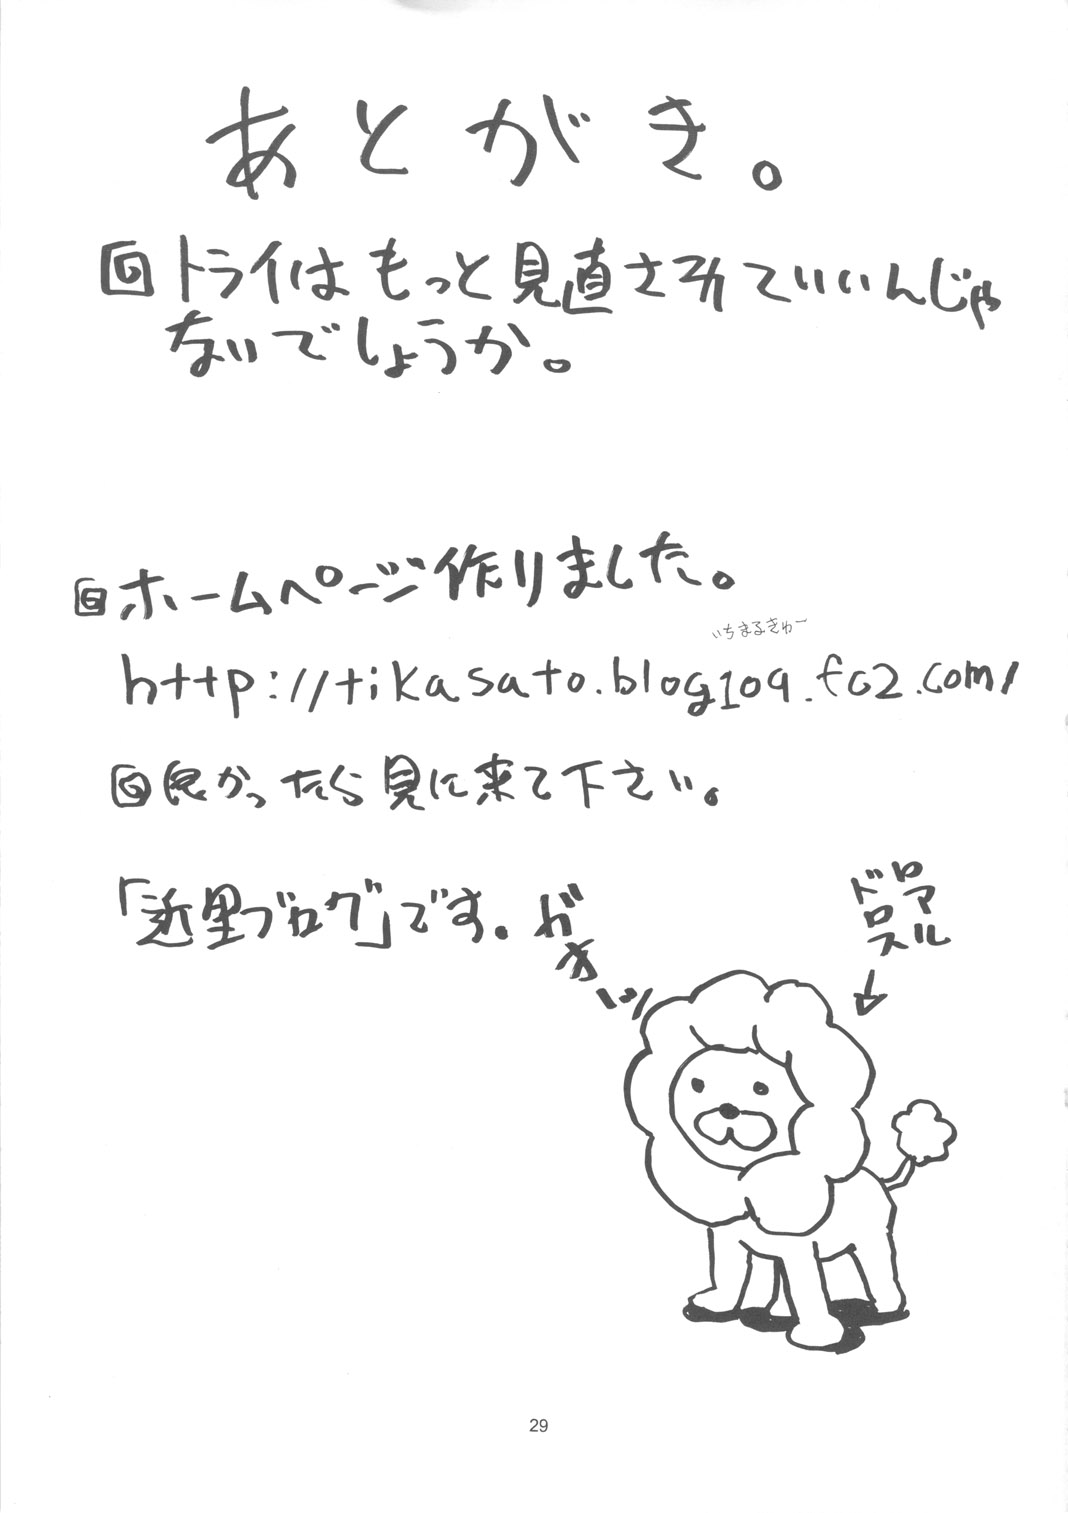 あとがき。
回トライはもっと見直されていいんじゃ
ないでしょうか。
回ホームページ作りました。
いちまるきゅー
http://tikasato.blog109.fc2.com/
回良かったら見に来て下さい。
「近里ブログ」です。
がオーッ
ロアアル
ドロス
29